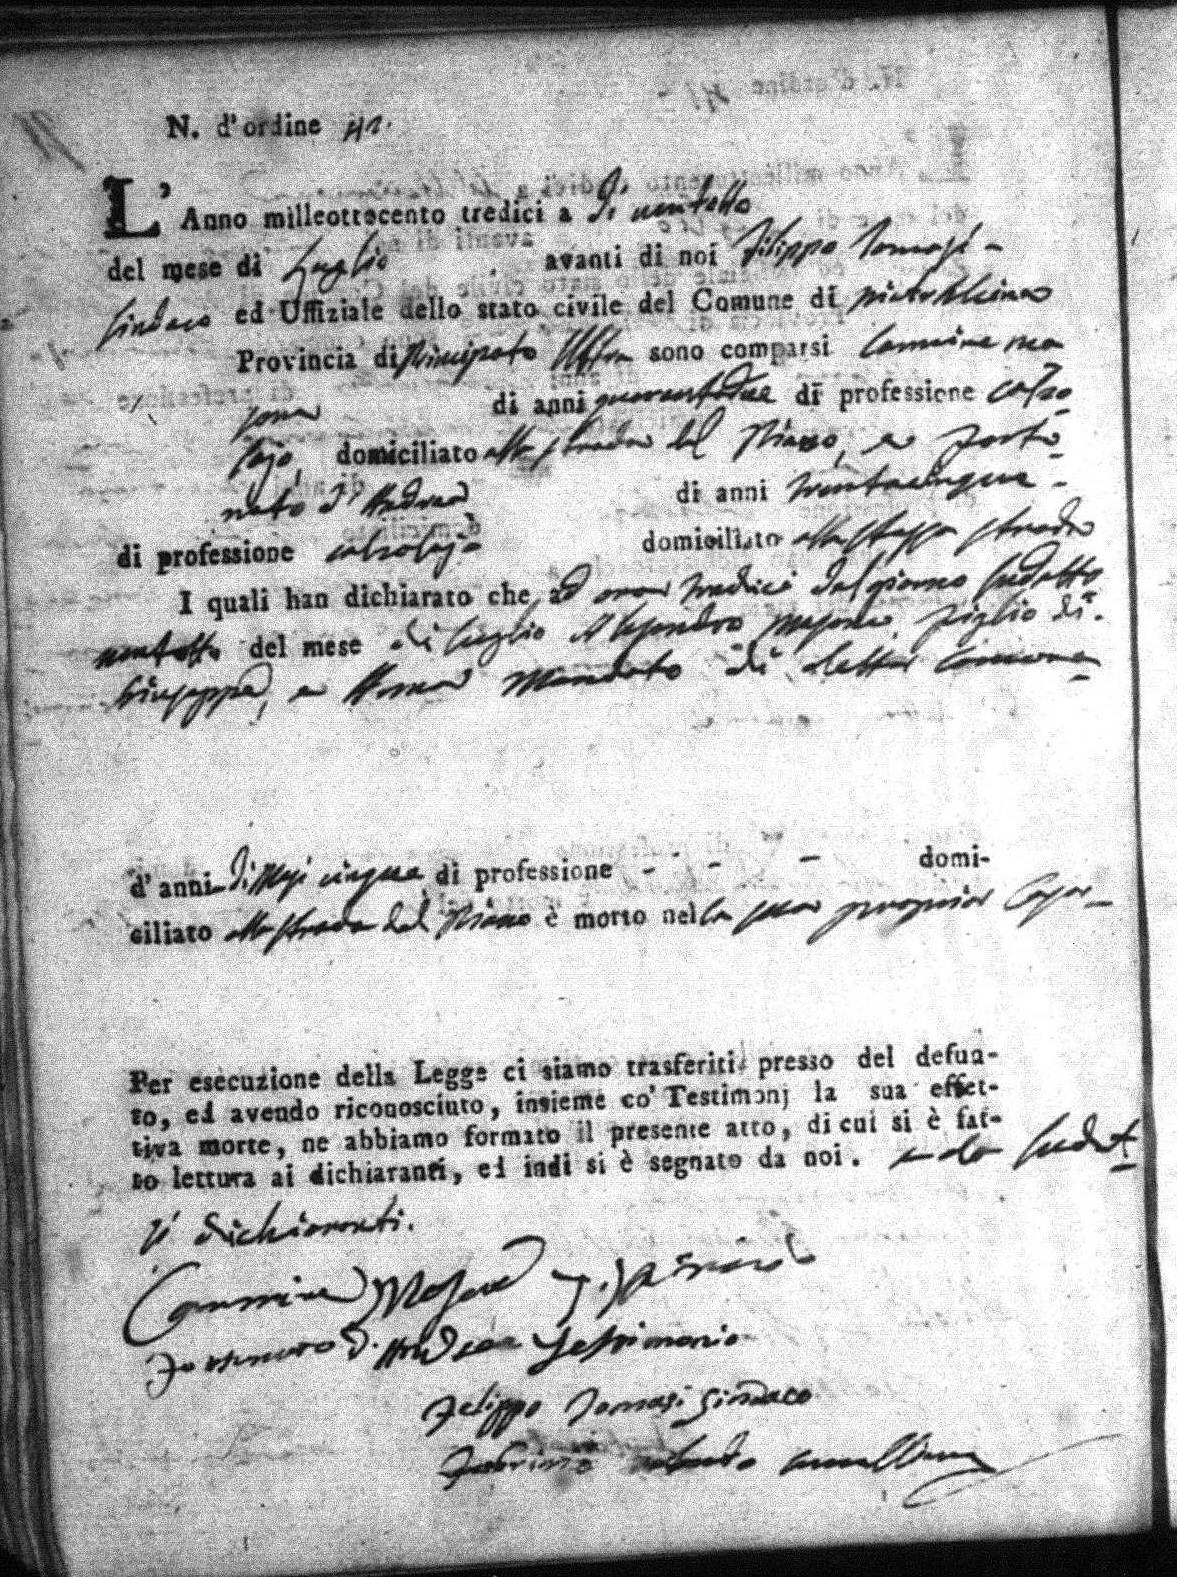 N. d'ordine 42.
L'Anno milleottocento tredici a dì ventotto
del mese di Luglio avanti di noi Filippo Tomasi
Sindaco ed Uffiziale dello stato civile del Comune di
Provincia di Principato sono comparsi Carmine Ma
sone di anni quarantadue di professione calzo
lajo, domiciliato alla strada del Piano, e Fortu
nato d'Andrea di anni trentacinque
di professione calzolajo domiciliato alla stessa strada
I quali han dichiarato che ad ore tredici del giorno sudetto
ventotto del mese di Luglio Masone figlio di
Giuseppe, e di detta Comune
d'anni di Mesi cinque di professione - - - domi-
ciliato alla strada del Piano è morto nella sua propria Casa
Per esecuzione della Legge ci siamo trasferiti presso del defun-
to, ed avendo riconosciuto, insieme co' Testimonj la sua effet-
tiva morte, ne abbiamo formato il presente atto, di cui si è fat-
to lettura ai dichiaranti, ed indi si è segnato da noi. e da sudet
ti dichiaranti.
Carmine Masone
Fortunato d'Andrea Testimonio
Felippo Tomasi Sindaco